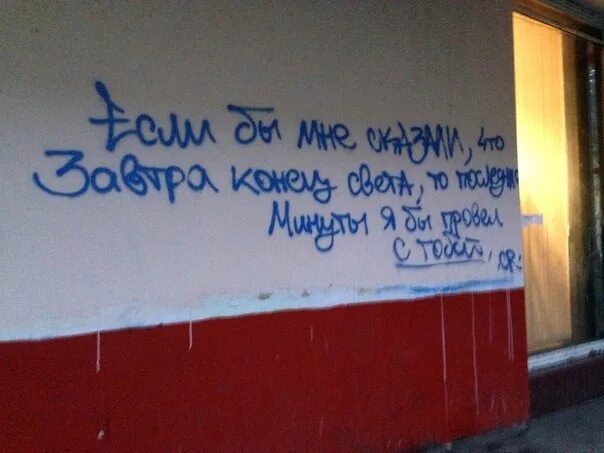 Если бы мне сказали, что
Завтра конец света, то последние
Минуты я бы провел
с тобой,